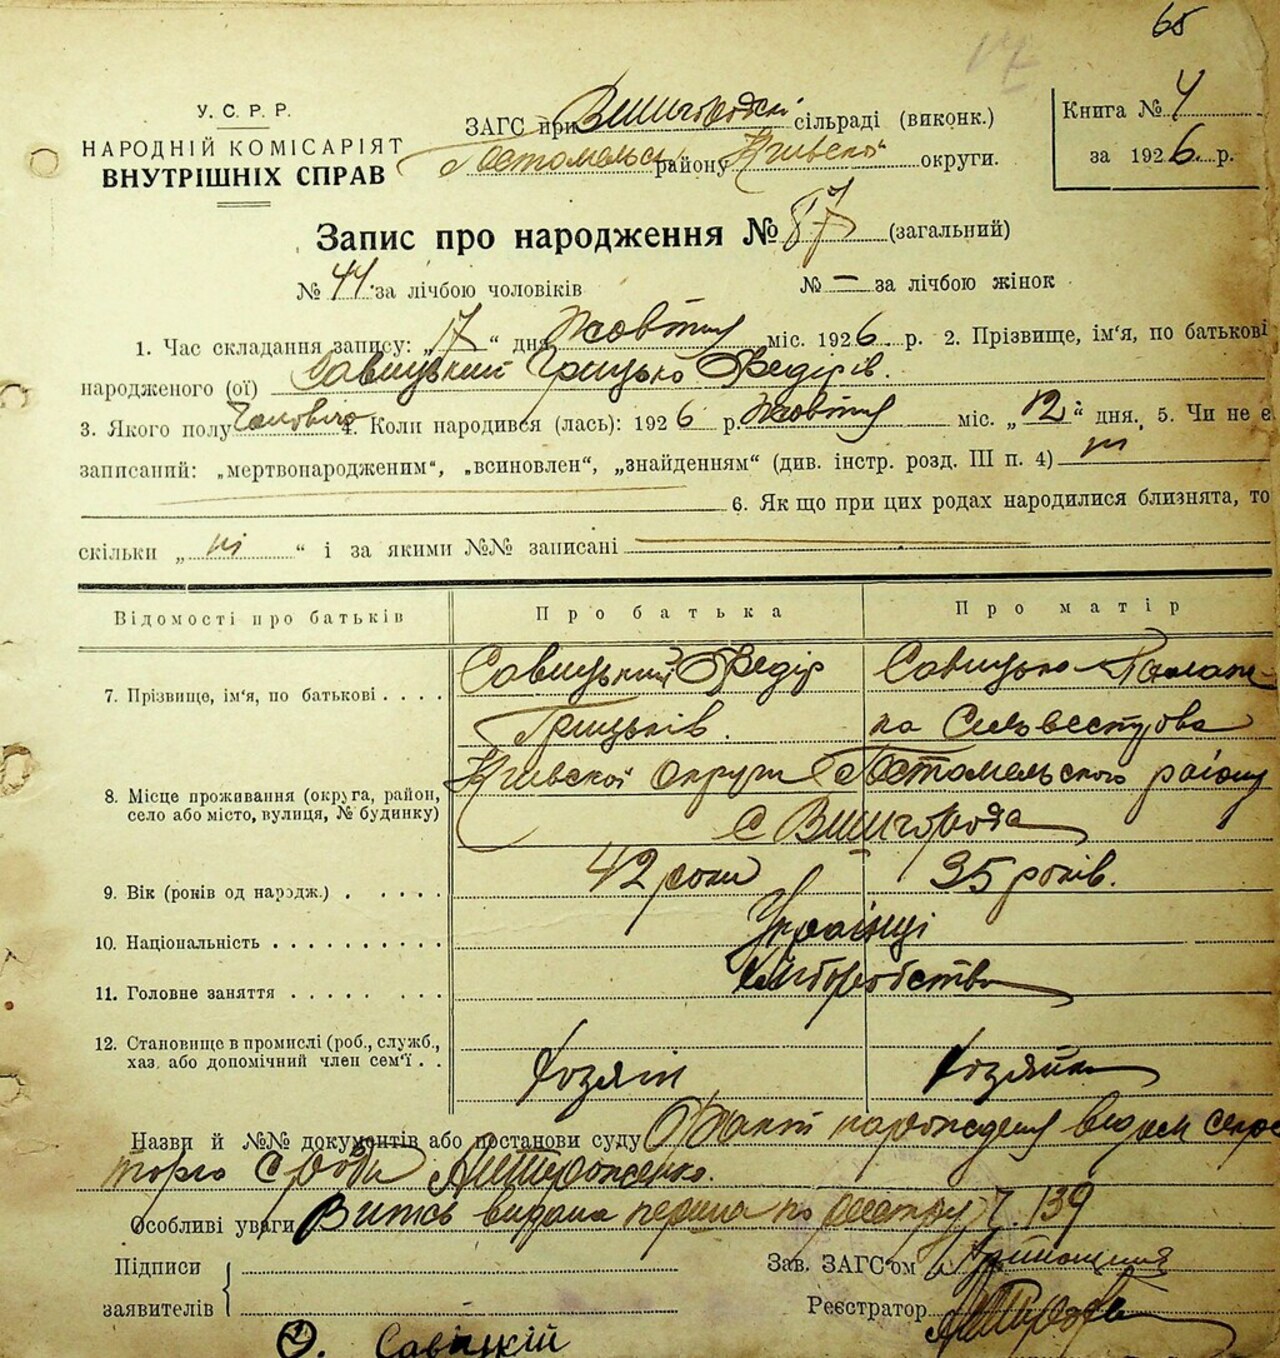 65
17
У. С. Р. Р.
НАРОДНІЙ КОМІСАРІЯТ
ВНУТРІШНІХ СПРАВ
ЗАГС при Вишгородскі сільраді (виконк.)
Гостомельск району Київскої округи.
Книга № 4
за 1926 р.
Запис про народження № 87 (загальний)
№ 44 за лічбою чоловіків № — за лічбою жінок
1. Час складання запису: „17“ дня Жовтня міс. 1926 р. 2. Прізвище, ім'я, по батькові
народженого (ої) Савицький Грицько Федірів.
3. Якого полу Чоловічо 4. Коли народився (лась): 1926 р. Жовтня міс. „12“ дня. 5. Чи не є
записаний: „мертвонародженим“, „всиновлен“, „знайденням“ (див. інстр. розд. III п. 4) ні
6. Як що при цих родах народилися близнята, то
скільки „ні“ і за якими №№ записані
Відомості про батьків Про батька Про матір
7. Прізвище, ім'я, по батькові . . . . Савицький Федір Савицька Палаж-
Грицьків. ка Сильвестрова
8. Місце проживання (округа, район, Київскої округи Гостомельского району
село або місто, вулиця, № будинку) с Вишгорода
9. Вік (років од народж.) . . . . . 42 роки 35 років.
10. Національність . . . . . . . . . . Українці
11. Головне заняття . . . . . . . . Хліборобство
12. Становище в промислі (роб., служб.,
хаз. або допомічний член сем'ї . . Хозяїн Хозяйка
Назви й №№ документів або постанови суду
Особливі уваги Витсь видана перша по реєстру Ч. 139
Підписи
заявителів
Зав. ЗАГС'ом
Реєстратор
Савіцкій